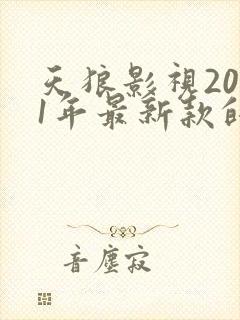 天狼影視20
1年最新款的
音塵寂